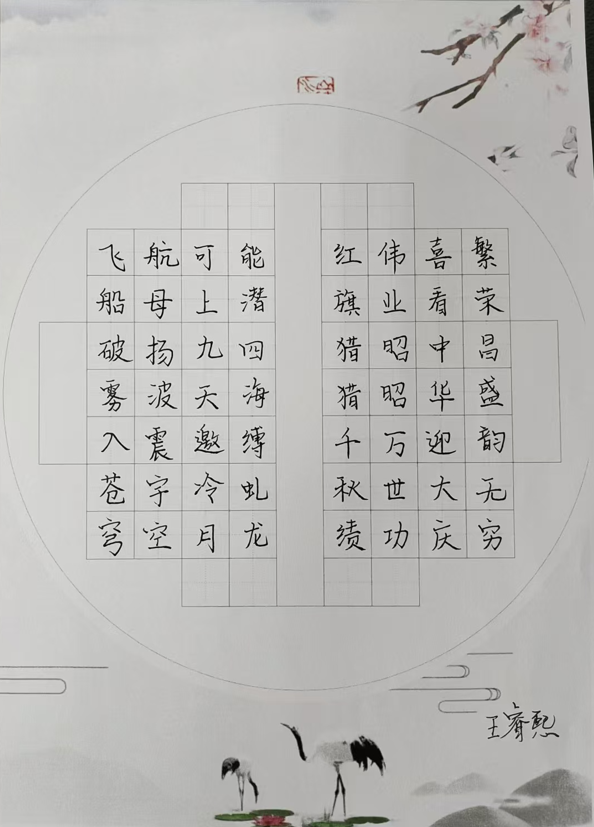 飞船破雾入苍穹
航母扬波震宇空
可上九天邀冷月
能潜四海缚虬龙
红旗猎猎千秋绩
伟业昭昭万世功
喜看中华迎大庆
繁荣昌盛韵无穷
王睿熙